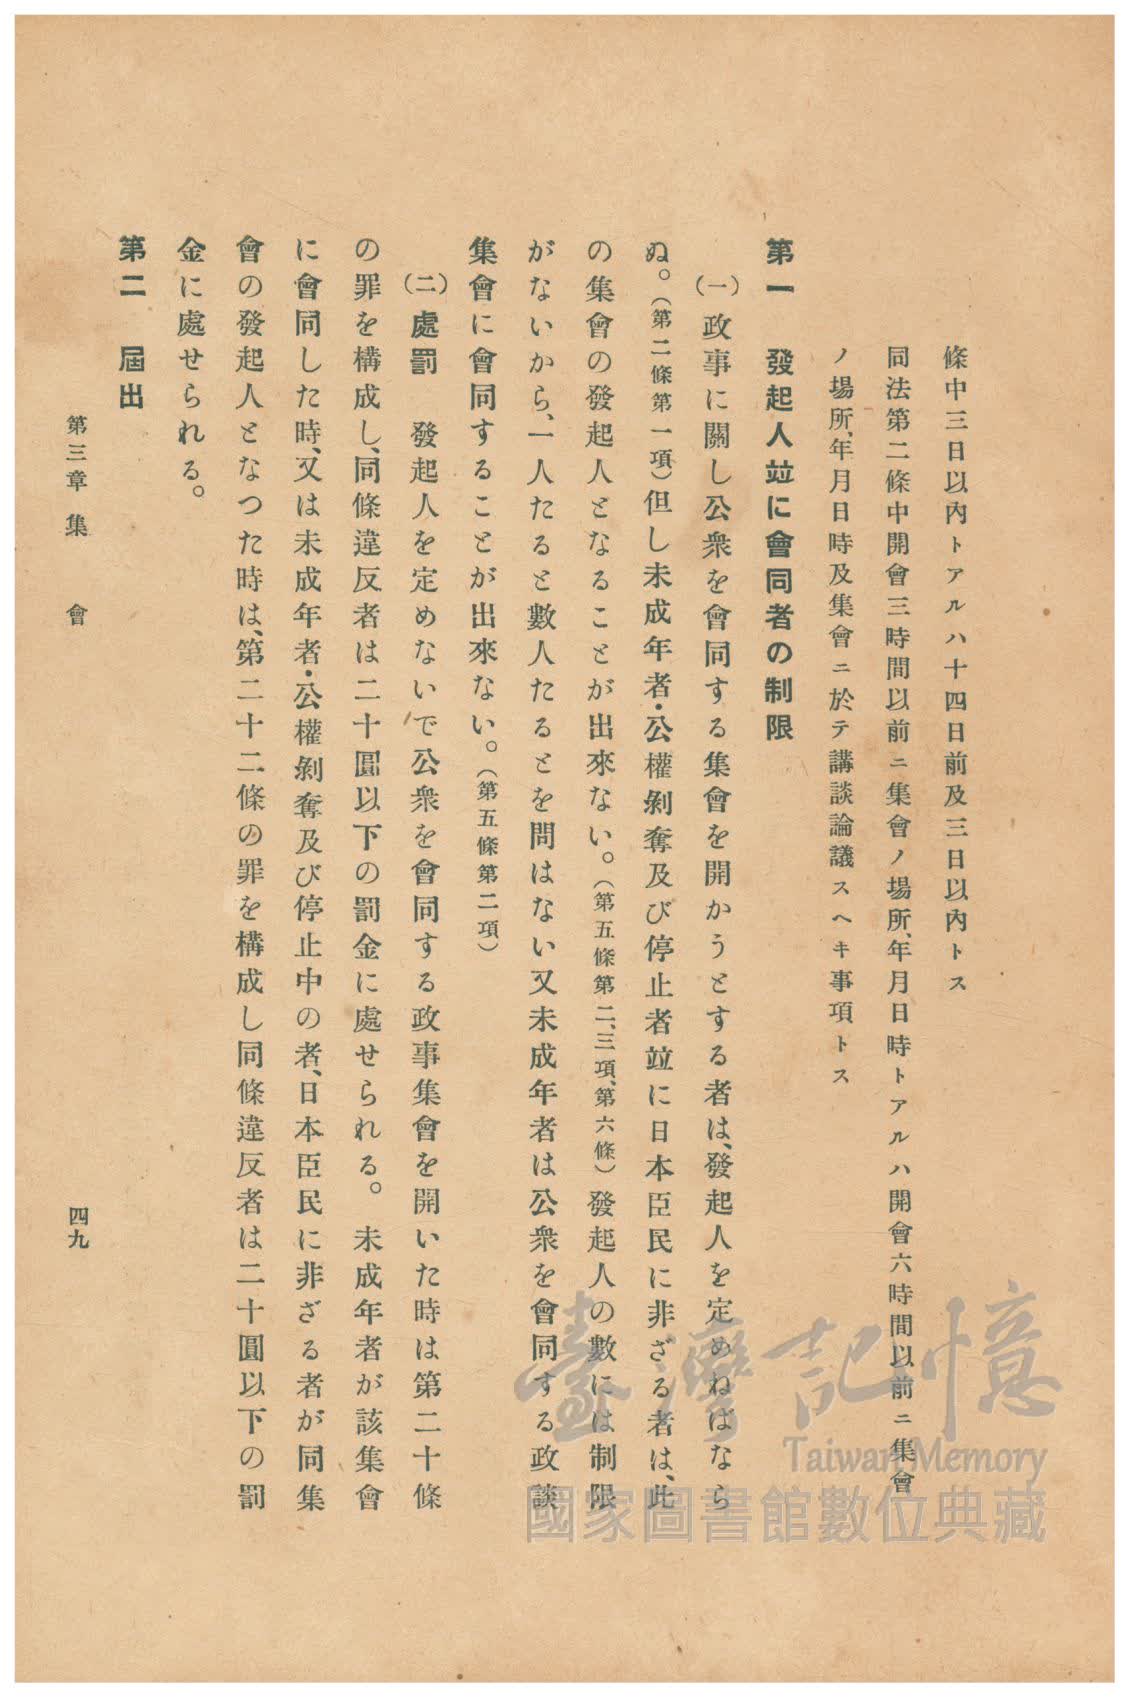 條中三日以內トアルハ十四日前及三日以內トス
同法第二條中開會三時間以前ニ集會ノ場所、年月日時トアルハ開會六時間以前ニ集會
ノ場所、年月日時及集會ニ於テ講談論議スヘキ事項トス
第一　發起人竝に會同者の制限
(一)政事に關し公衆を會同する集會を開かうとする者は、發起人を定めねばなら
ぬ。(第二條第一項)但し未成年者・公權剝奪及び停止者竝に日本臣民に非ざる者は、此
の集會の發起人となることが出來ない。(第五條第二、三項、第六條)發起人の數には制限
がないから、一人たると數人たるとを問はない又未成年者は公衆を會同する政談
集會に會同することが出來ない。(第五條第二項)
(二)處罰　發起人を定めないで公衆を會同する政事集會を開いた時は第二十條
の罪を構成し、同條違反者は二十圓以下の罰金に處せられる。未成年者が該集會
に會同した時、又は未成年者・公權剝奪及び停止中の者、日本臣民に非ざる者が同集
會の發起人となつた時は、第二十二條の罪を構成し同條違反者は二十圓以下の罰
金に處せられる。
第二　屆出
第三章　集　會
四九
臺灣記憶
Taiwan Memory
國家圖書館數位典藏